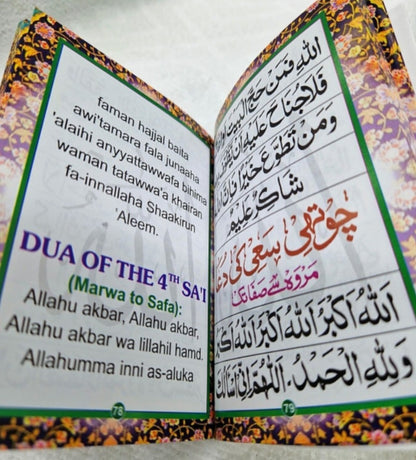 faman hajjal baita
awi'tamara fala junaaha
'alaihi anyyattawwafa bihima
waman tatawwa'a khairan
fa-innallaha Shaakirun
'Aleem.
DUA OF THE 4TH SA'I
(Marwa to Safa):
Allahu akbar, Allahu akbar,
Allahu akbar wa lillahil hamd.
Allahumma inni as-aluka
78
اللهِ فَمَنْ حَجَّ الْبَيْتَ
فَلَا جُنَاحَ عَلَيْهِ اَنْ
وَمَنْ تَطَوَّعَ خَيْرًا فَاِنَّ
شَاكِرٌ عَلِيْمٌ
چوتھی سعی کی دعا
مروہ سے صفا تک
اَللهُ اَكْبَرُ اَللهُ اَكْبَرُ اَللهُ
وَلِلّٰهِ الْحَمْدُ، اَللّٰهُمَّ اِنِّیْ اَسْاَلُكَ
79